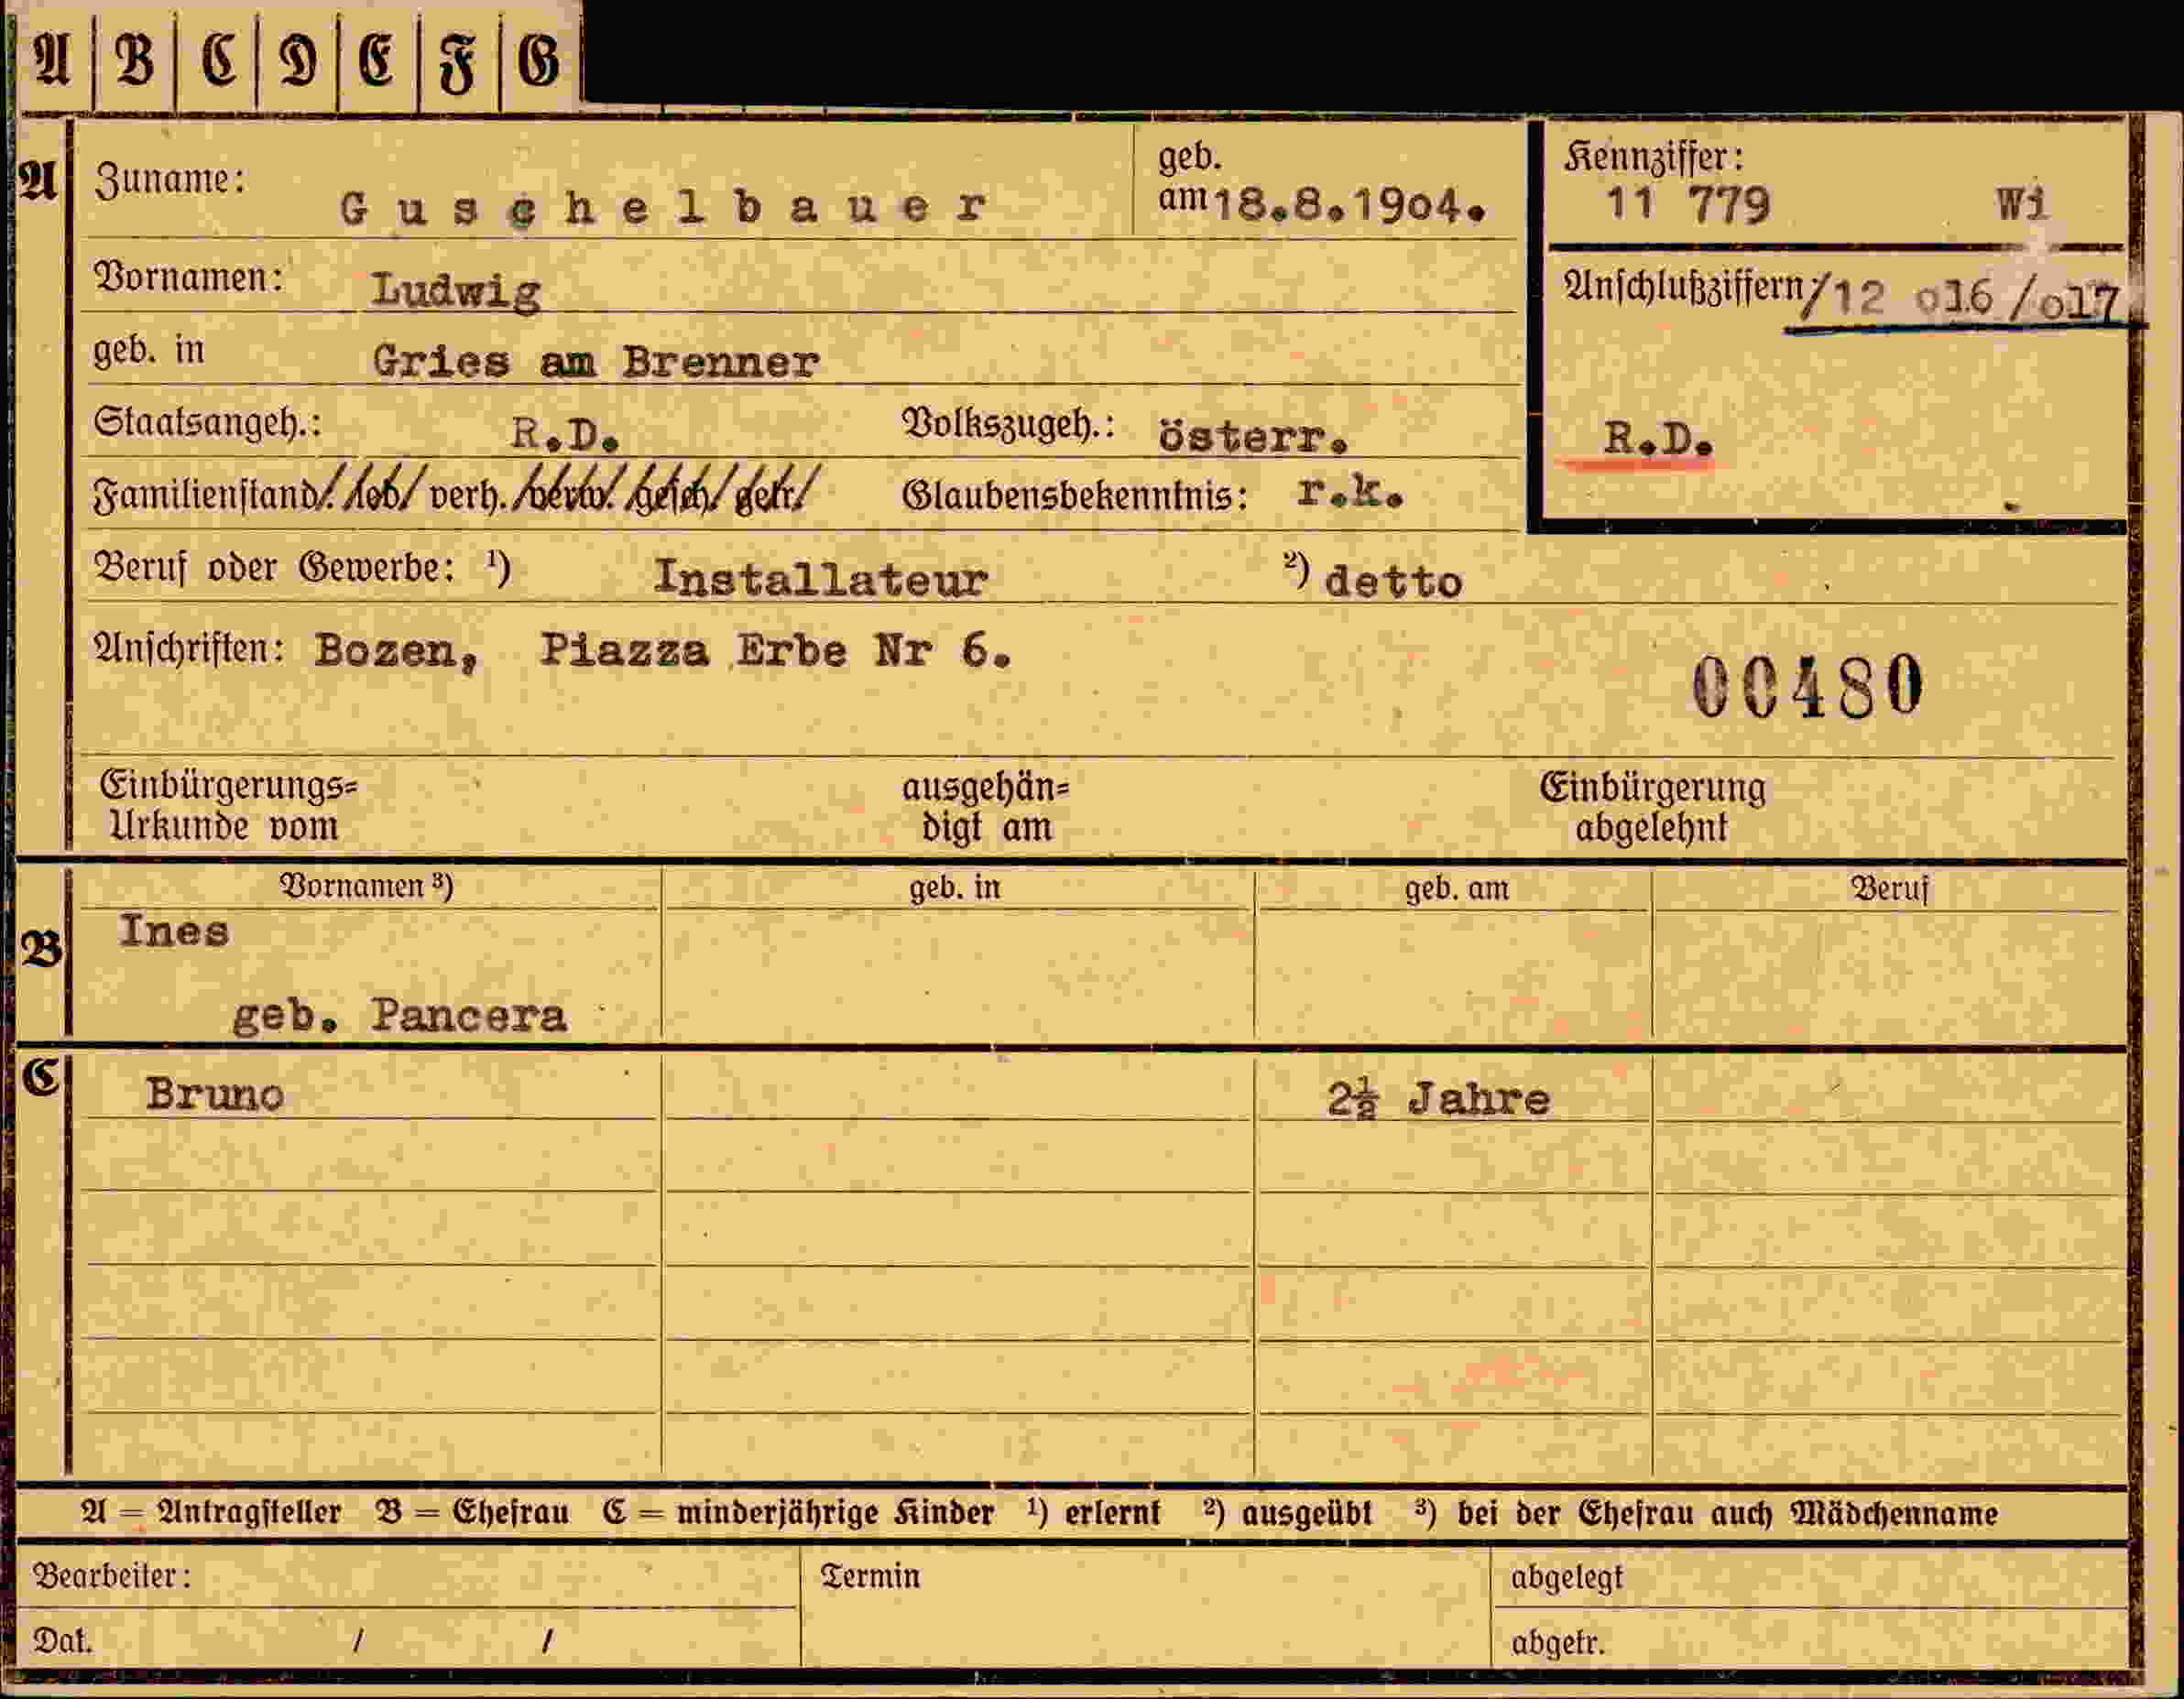 A B C D E F G
A Zuname: Guschelbauer geb. am 18.8.1904. Kennziffer: 11 779 Wi
Vornamen: Ludwig Anschlußziffern/12 016/017
geb. in Gries am Brenner
Staatsangeh.: R.D. Volkszugeh.: österr. R.D.
Familienstand: led. verh. verw. gesch. getr. Glaubensbekenntnis: r.k.
Beruf oder Gewerbe: ¹) Installateur ²) detto
Anschriften: Bozen, Piazza Erbe Nr 6.
00480
Einbürgerungs= ausgehän= Einbürgerung
Urkunde vom digt am abgelehnt
Vornamen ³) geb. in geb. am Beruf
B Ines
geb. Pancera
C Bruno 2½ Jahre
A = Antragsteller B = Ehefrau C = minderjährige Kinder ¹) erlernt ²) ausgeübt ³) bei der Ehefrau auch Mädchenname
Bearbeiter: Termin abgelegt
Dat. / / abgetr.